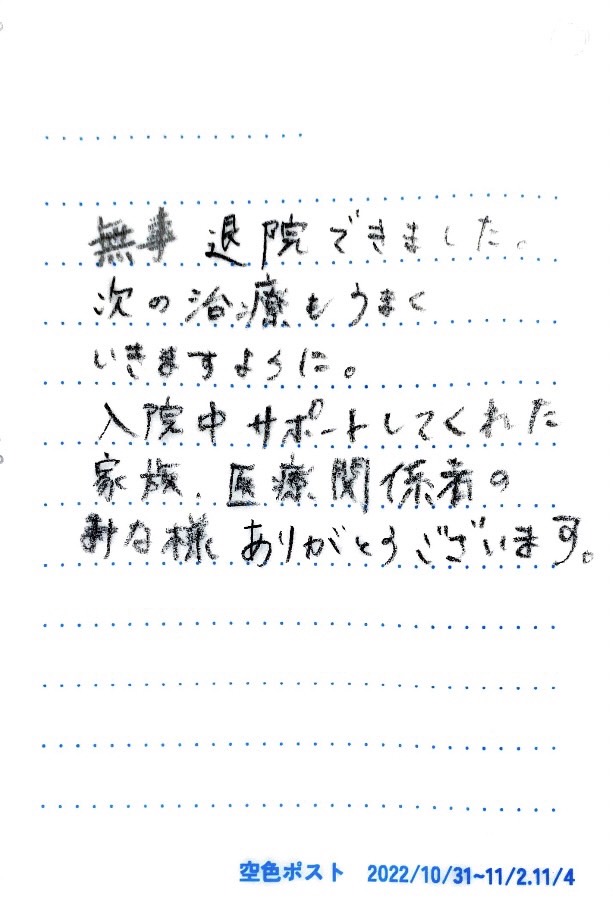 無事 退院できました。
次の治療もうまく
いきますように。
入院中サポートしてくれた
家族、医療関係者の
みな様 ありがとうございます。
空色ポスト 2022/10/31~11/2.11/4